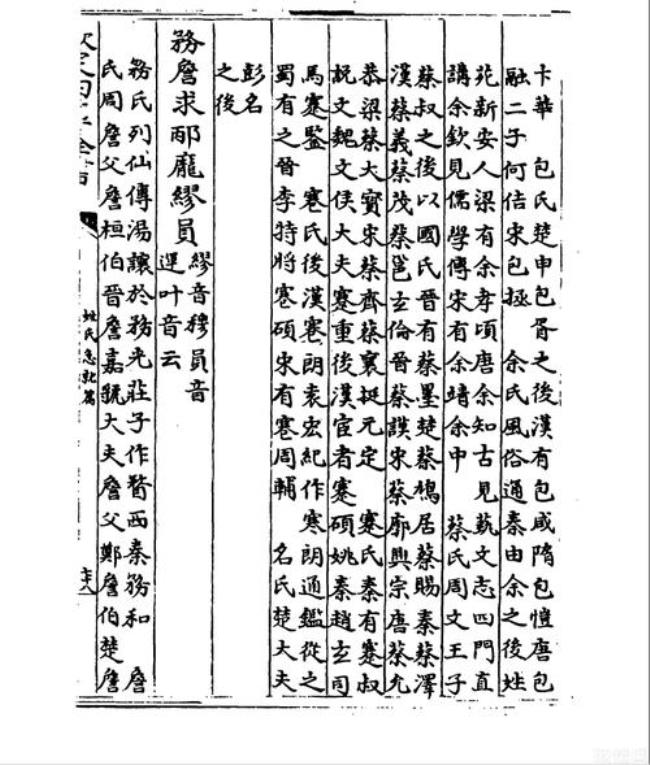 卞華　包氏楚申包胥之後漢有包咸隋包愷唐包
融二子何佶宋包拯　余氏風俗通秦由余之後姓
苑新安人梁有余孝頃唐余知古見藝文志四門直
講余欽見儒學傳宋有余靖余中　蔡氏周文王子
蔡叔之後以國氏晉有蔡墨楚蔡鳩居蔡賜秦蔡澤
漢蔡義蔡茂蔡邕玄倫晉蔡謨宋蔡廓興宗唐蔡允
恭梁蔡大寳宋蔡齊蔡襄挺元定　蹇氏秦有蹇叔
説文魏文侯大夫蹇重後漢宦者蹇碩姚秦趙玄司
馬蹇鑒　寋氏後漢寋朗袁宏紀作寒朗通鑑從之
蜀有之晉李特將寋碩宋有寋周輔　名氏楚大夫
彭名
之後
務詹求邴龎繆員
繆音穆員音
運叶音云
務氏列仙傳湯讓於務光莊子作瞀西秦務和　詹
氏周詹父詹桓伯晉詹嘉虢大夫詹父鄭詹伯楚詹
欽定四庫全書
姓氏急就篇